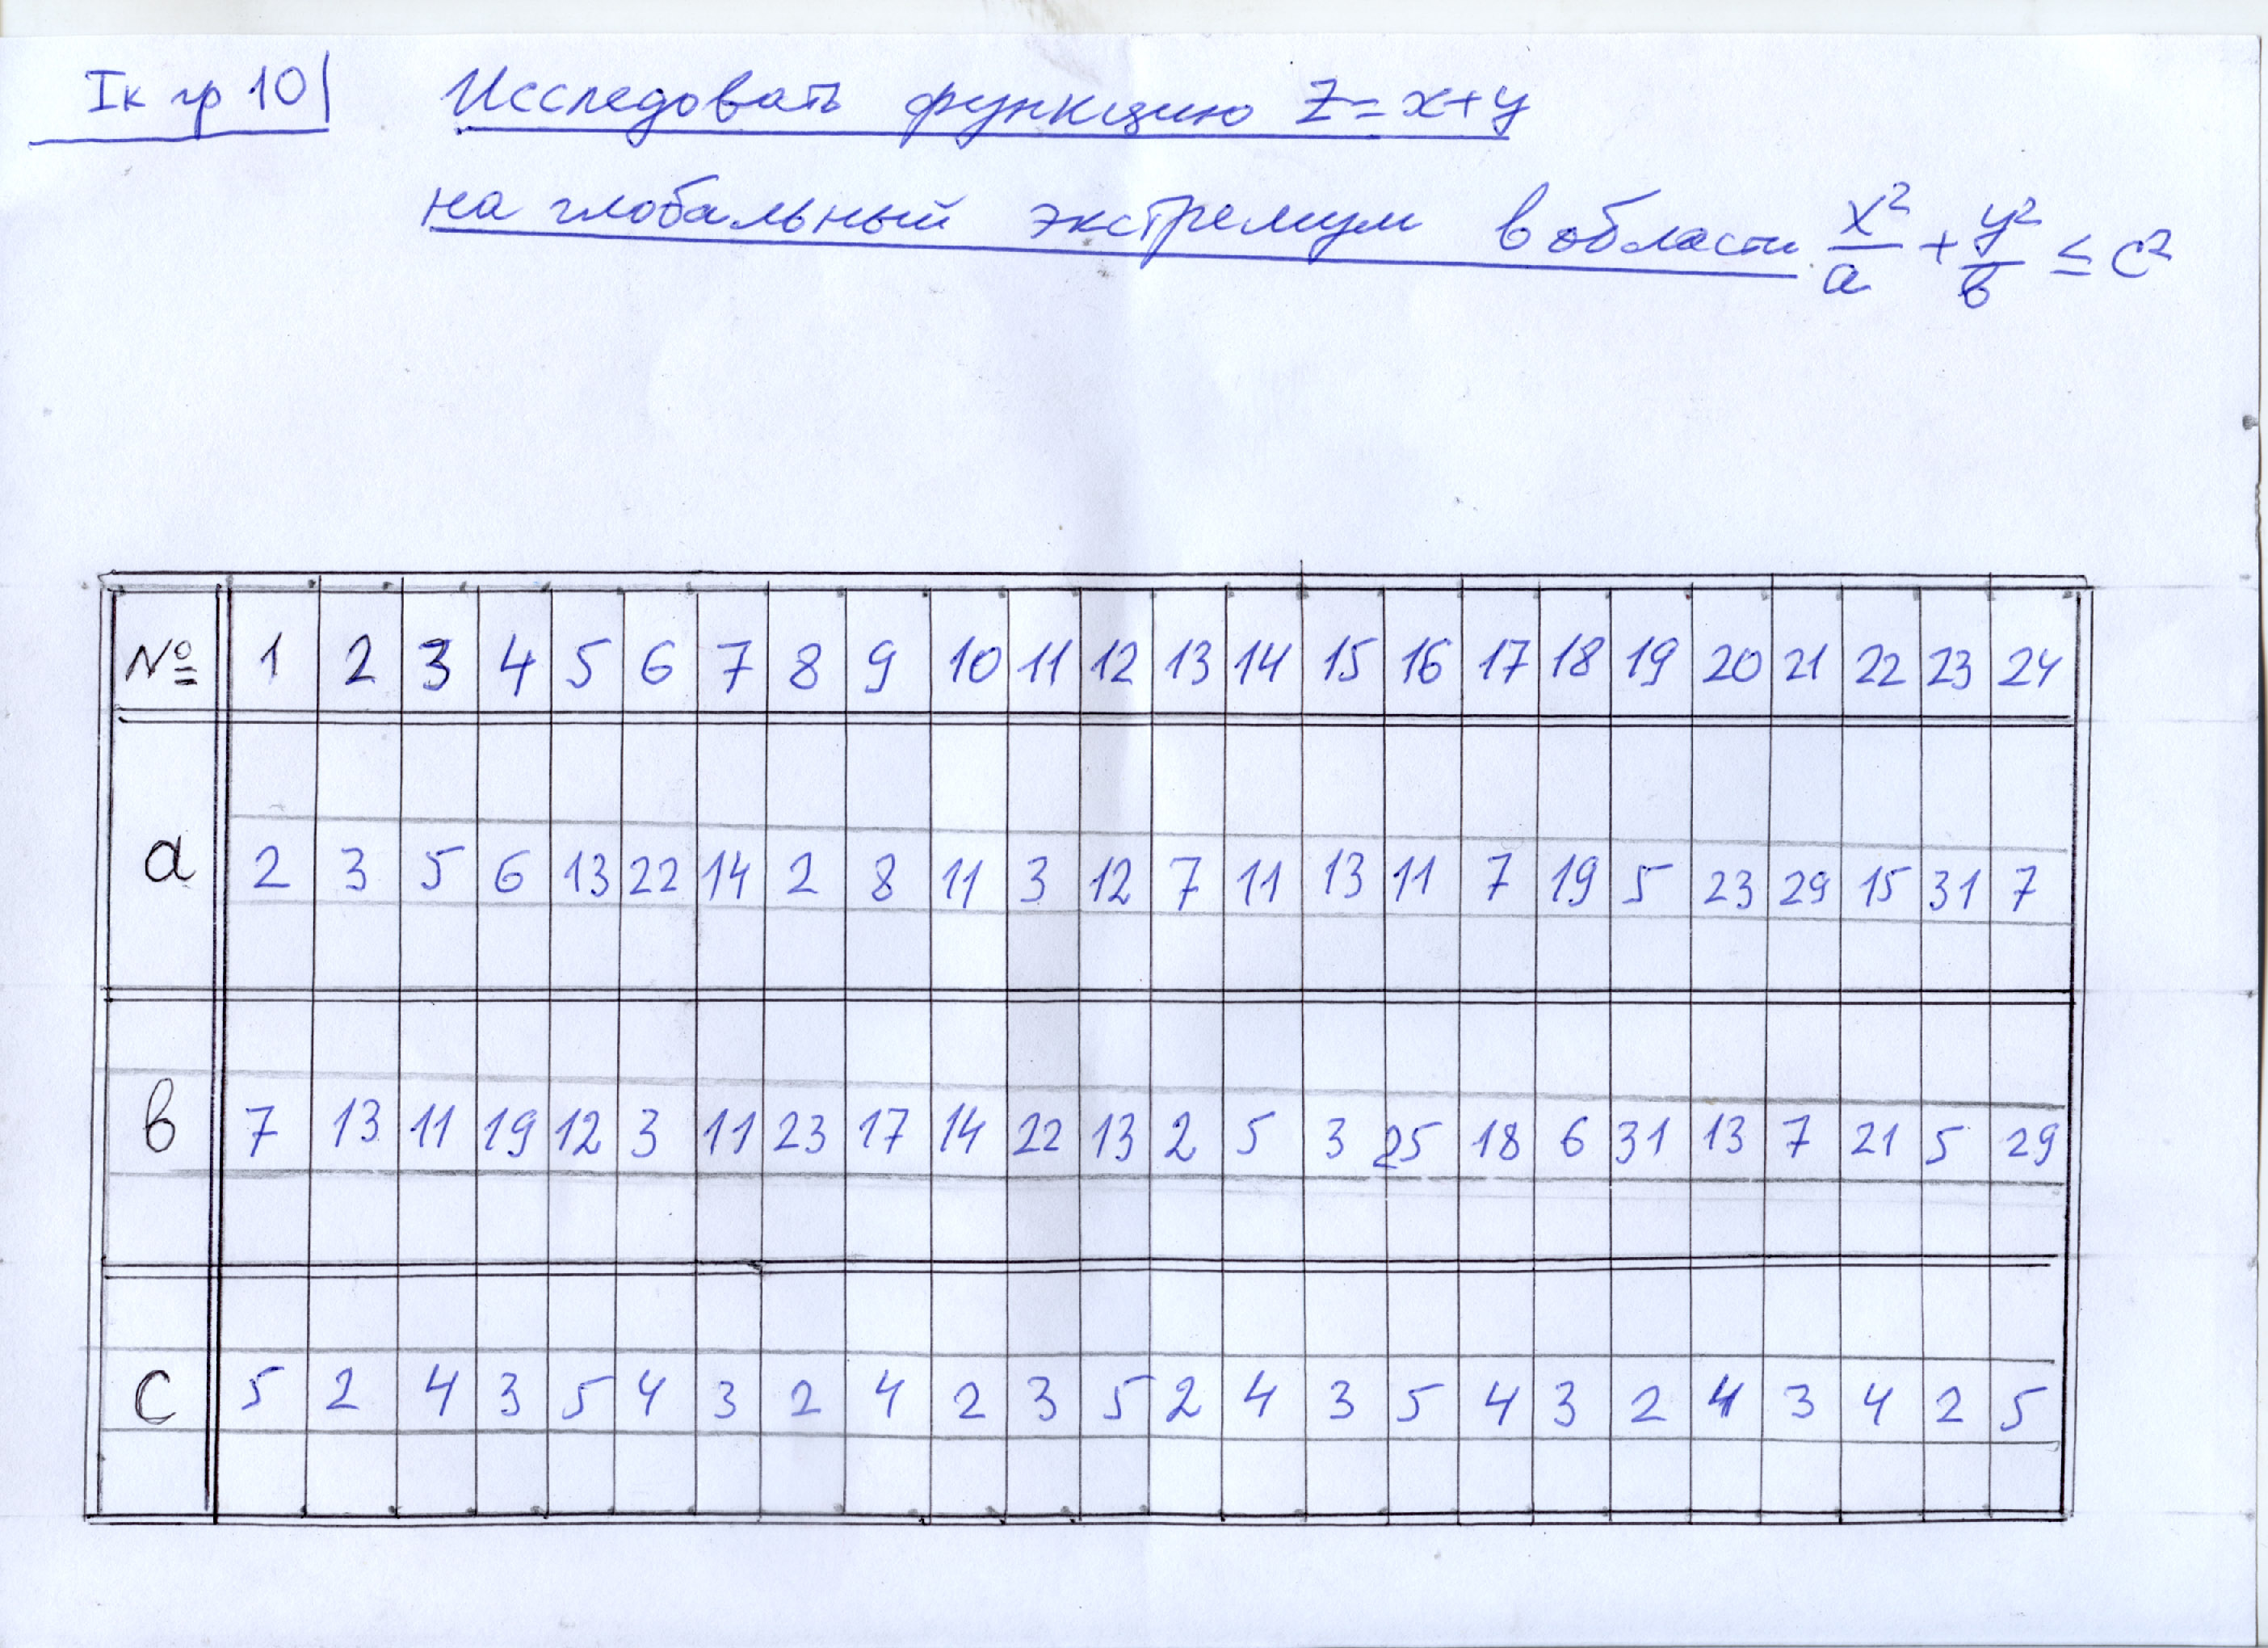 Iк гр 101 Исследовать функцию z=x+y
на глобальный экстремум в области x²/a + y²/b ≤ c²
№ 1 2 3 4 5 6 7 8 9 10 11 12 13 14 15 16 17 18 19 20 21 22 23 24
a 2 3 5 6 13 22 14 2 8 11 3 12 7 11 13 11 7 19 5 23 29 15 31 7
b 7 13 11 19 12 3 11 23 17 14 22 13 2 5 3 25 18 6 31 13 7 21 5 29
c 5 2 4 3 5 4 3 2 4 2 3 5 2 4 3 5 4 3 2 4 3 4 2 5